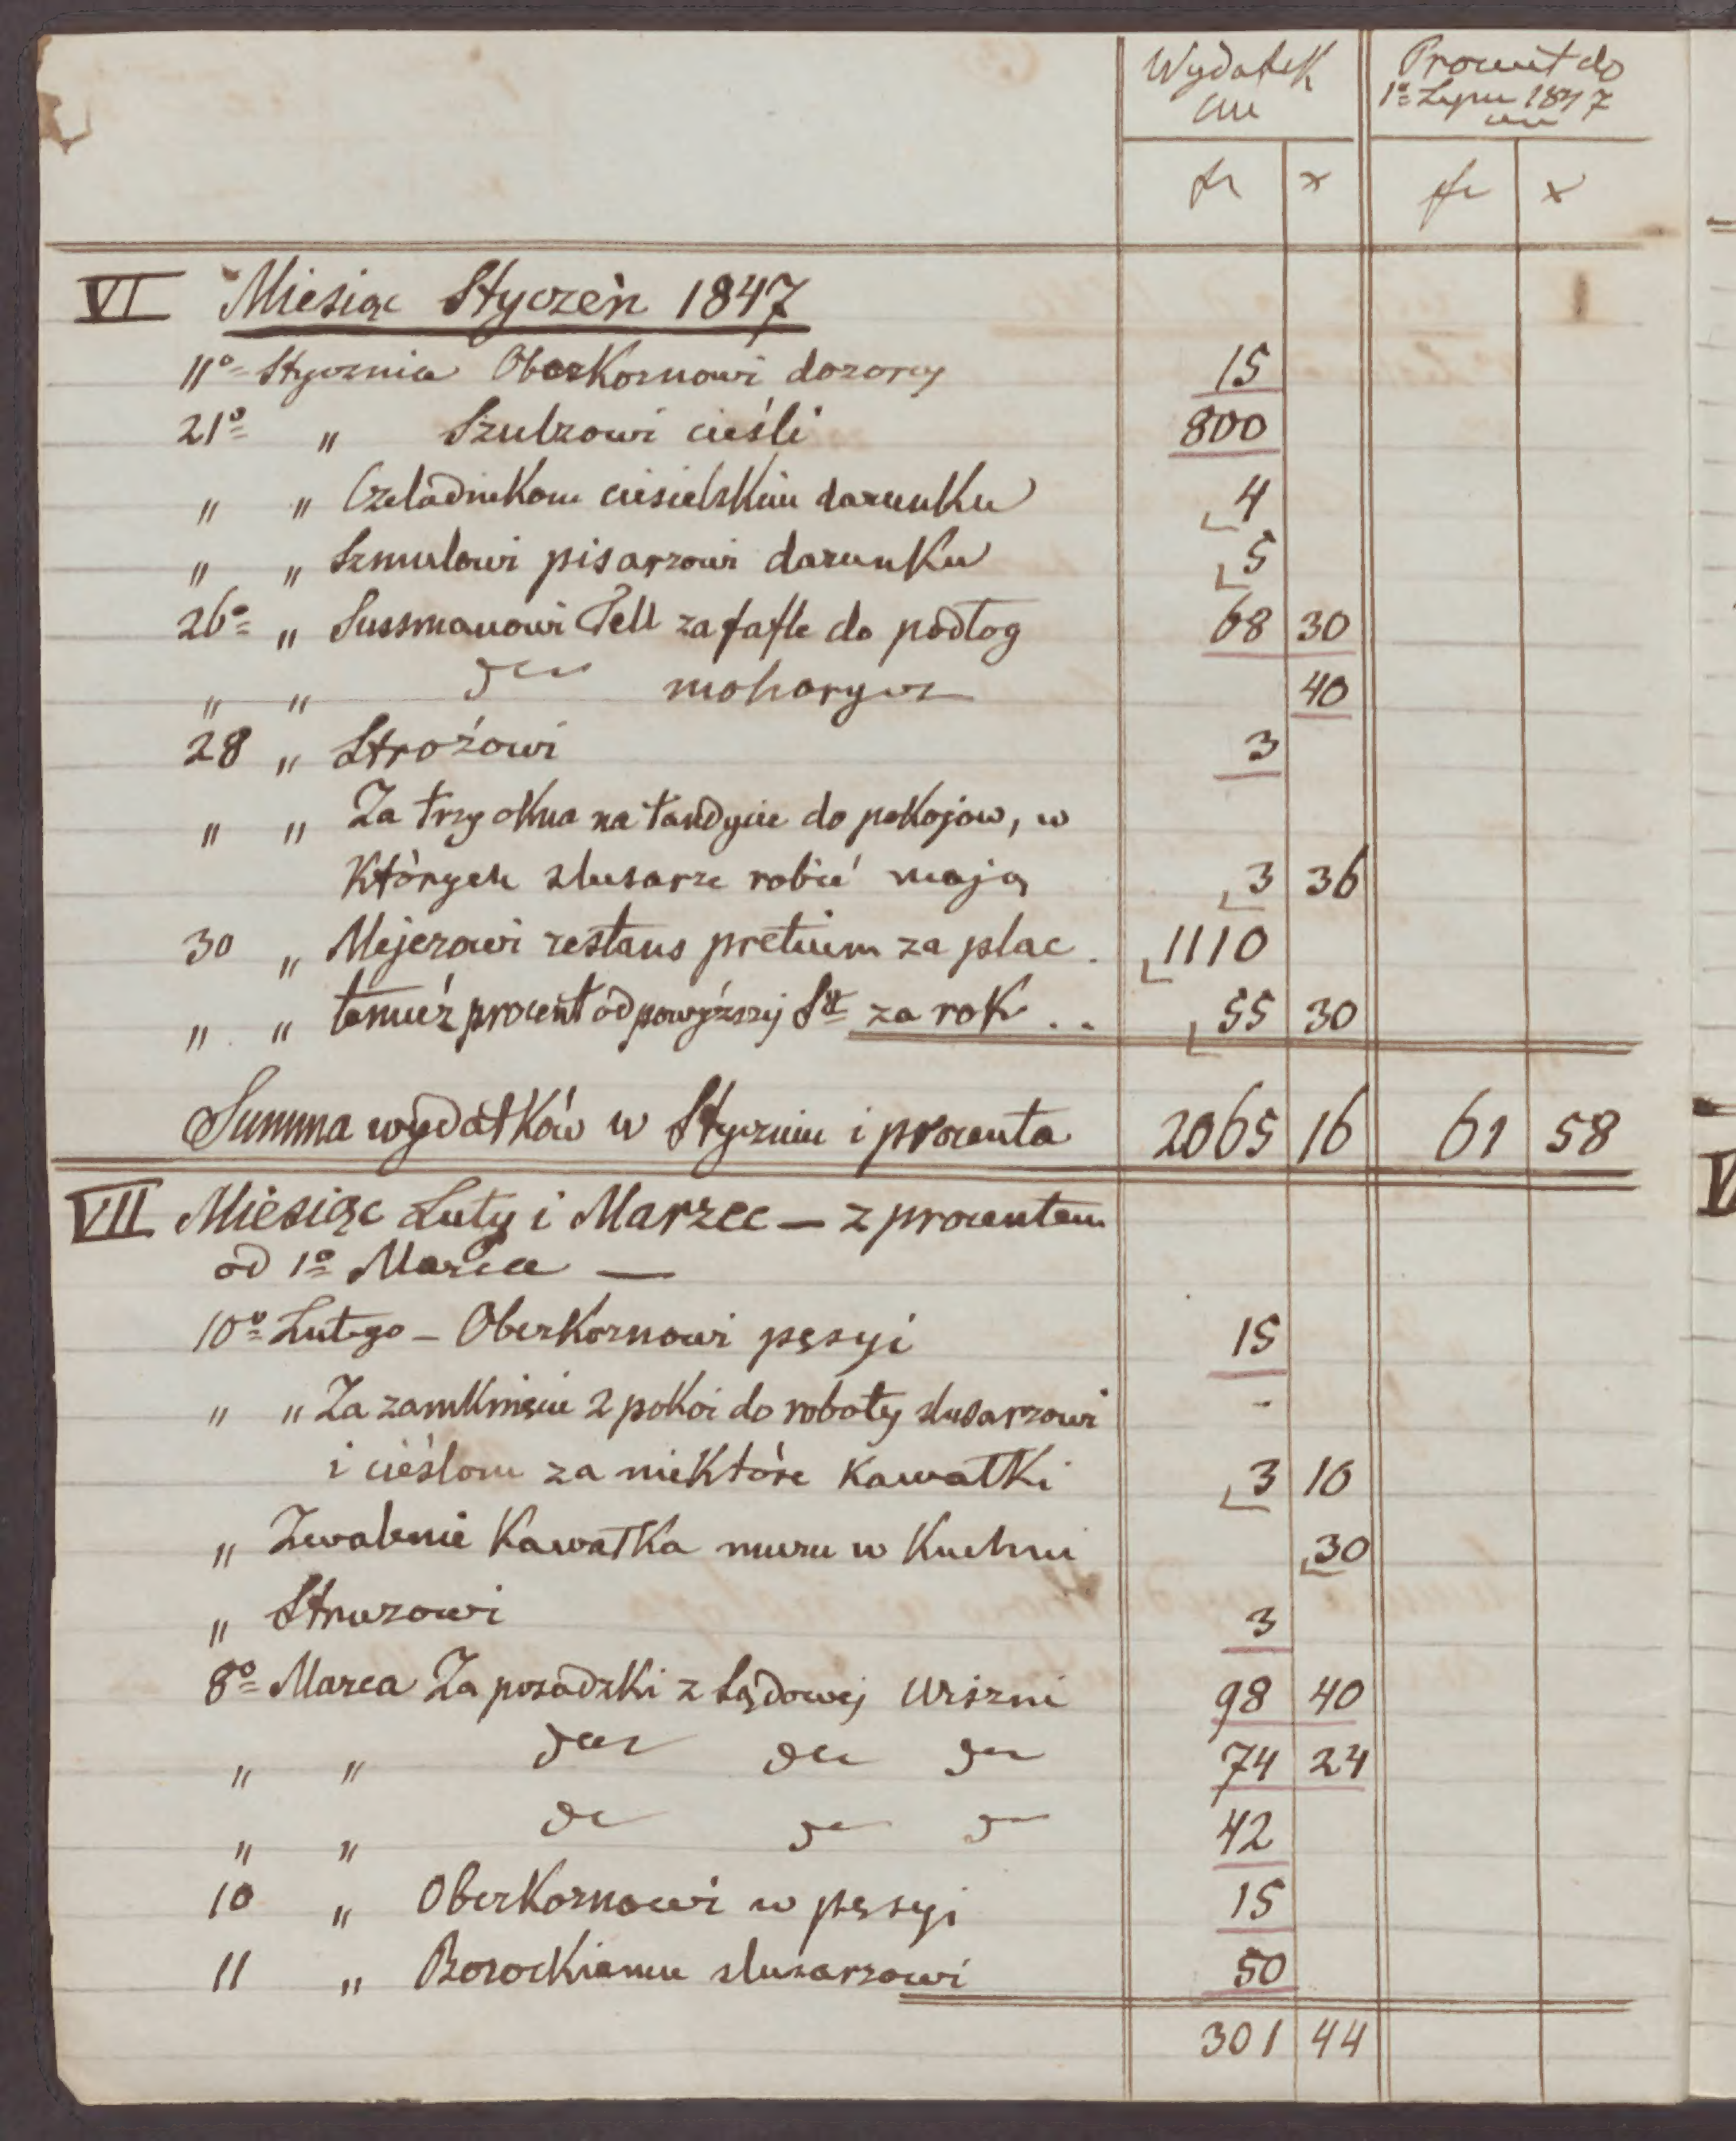 Wydatek Procent do
cm 1º Lipca 1847
cm
fr x fr x
VI Miesiąc Styczeń 1847
11º Stycznia Oberkornowi dozorcy 15
21º " Szulzowi cieśli 800
" " Czeladnikom ciesielskim darunku 4
" " Szmulowi pisarzowi darunku 5
26º " Sussmanowi Fell za tafle do podłog 68 30
" " dto mohorycz 40
28 " Strożowi 3
" " Za trzy okna na tandycie do pokojow, w
których slusarze robić mają 3 36
30 " Mejerowi restans pretium za plac . 1110
" " temuż procent od powyższej Sy za rok .. 55 30
Summa wydatków w Styczniu i procenta 2065 16 61 58
VII Miesiąc Luty i Marzec — z procentem
od 1º Marca —
10º Lutego - Oberkornowi pęsyi 15
" " Za zamknięcie 2 pokoi do roboty slusarzowi -
i cieślom za niektóre kawałki 3 10
" Zwalenie kawałka muru w kuchni 30
" Struzowi 3
8º Marca Za posadzki z Sądowej Wiszni 98 40
" " dto dto dto 74 24
" " dto dto dto 42
10 " Oberkornowi w pęsyi 15
11 " slusarzowi 50
301 44